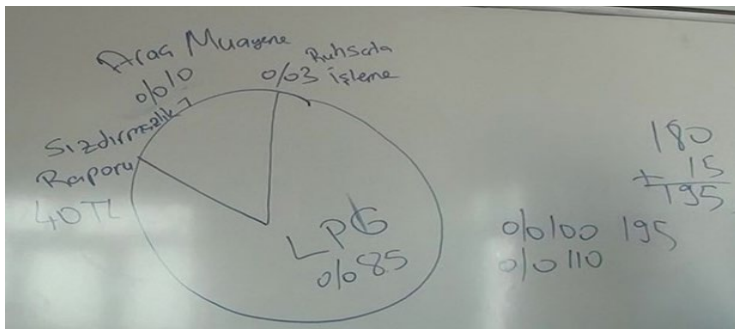 Araç Muayene
%10
Ruhsata
%3 İşleme
Sızdırmazlık
Raporu
40TL
LPG
%85
180
+ 15
195
%100 195
%110